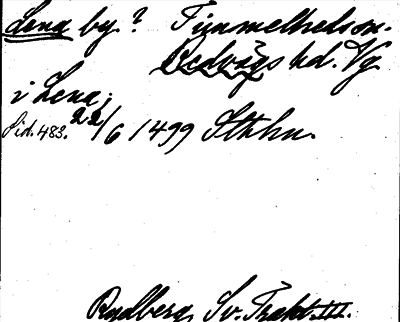 Lena by? Timmelhedson.
Redvägs hd. Vg.
i Lena;
Sid. 483. 22/6 1499 Sthlm.
Rydberg, Sv. Trakt. III.